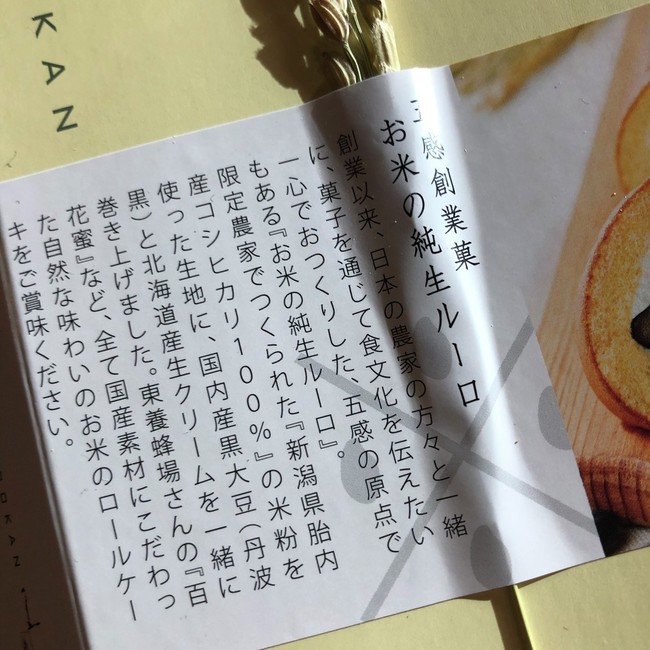 五感創業菓
お米の純生ルーロ
創業以来、日本の農家の方々と一緒
に、菓子を通じて食文化を伝えたい
一心でおつくりした、五感の原点で
もある『お米の純生ルーロ』。
限定農家でつくられた『新潟県胎内
産コシヒカリ100%』の米粉を
使った生地に、国内産黒大豆(丹波
黒)と北海道産生クリームを一緒に
巻き上げました。東養蜂場さんの『百
花蜜』など、全て国産素材にこだわっ
た自然な味わいのお米のロールケー
キをご賞味ください。
KAN
GOKAN